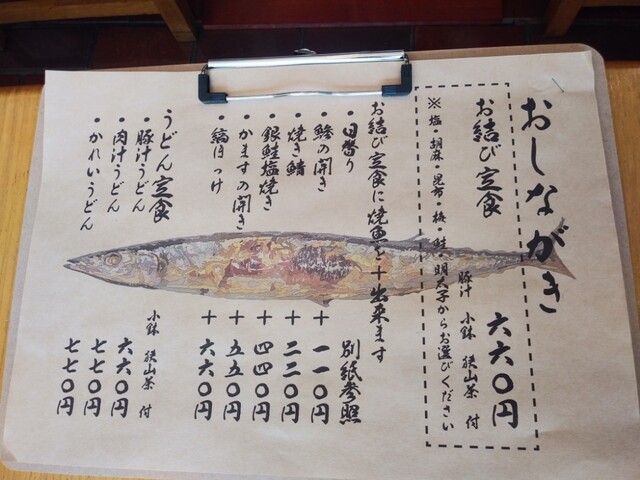 おしながき
お結び定食 六六〇円
豚汁 小鉢 狭山茶 付
※ 塩・胡麻・昆布・梅・鮭・明太子からお選びください
お結び定食に焼魚を＋出来ます
・日替り 別紙参照
・鯵の開き ＋一一〇円
・焼き鯖 ＋二二〇円
・銀鮭塩焼き ＋四四〇円
・かますの開き ＋五五〇円
・縞ほっけ ＋六六〇円
うどん定食 小鉢 狭山茶 付
・豚汁うどん 六六〇円
・肉汁うどん 七七〇円
・かれいうどん 七七〇円